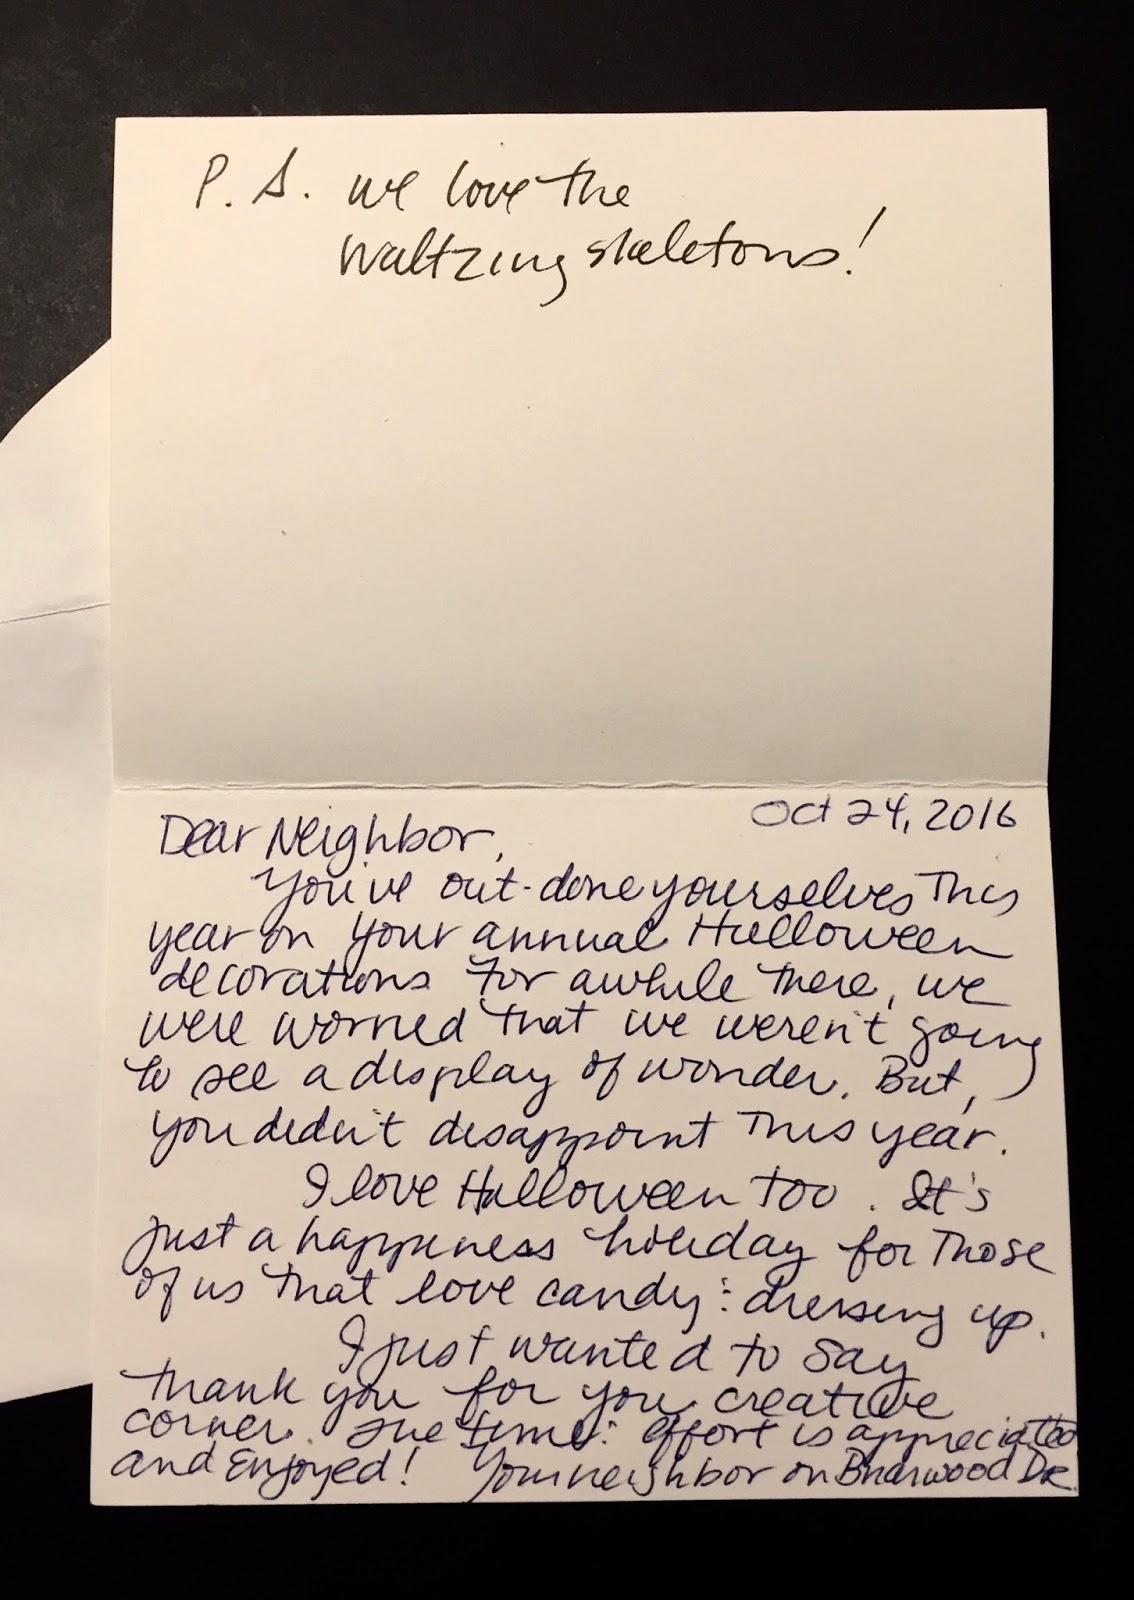 P. S. we love the
waltzing skeletons!
Oct 24, 2016
Dear Neighbor,
You've out-done yourselves this
year on your annual Halloween
decorations. For awhile there, we
were worried that we weren't going
to see a display of wonder. But,
you didn't disappoint this year.
I love Halloween too. It's
just a happiness holiday for those
of us that love candy : dressing up.
I just wanted to say
thank you for you creative
corner. The time : effort is appreciated
and Enjoyed! Your neighbor on Briarwood Dr.